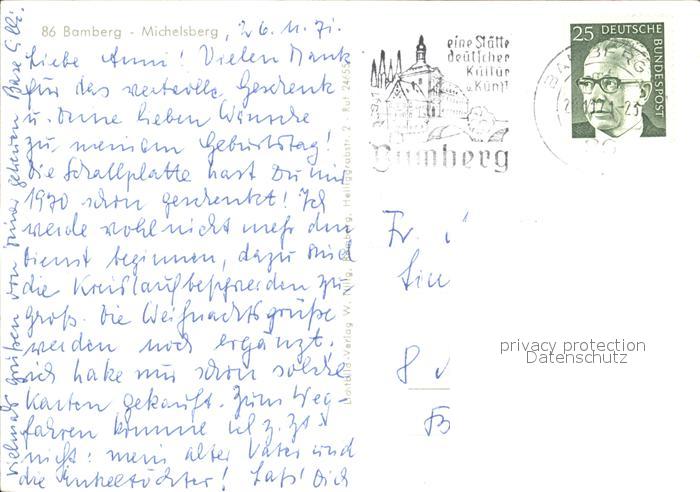 86 Bamberg - Michelsberg , 26.11.71.
Liebe Anni! Vielen Dank
für das wertvolle Geschenk
u. Deine lieben Wünsche
zu meinem Geburtstag!
Die Schallplatte hast Du mir
1970 schon geschenkt! Ich
werde wohl nicht mehr den
Dienst beginnen, dazu sind
die Kreislaufbeschwerden zu
groß. Die Weihnachtsgrüße
werden noch ergänzt.
Ich habe mir schon solche
Karten gekauft. Zum Weg-
fahren komme ich z. Zt.
nicht: mein alter Vater und
die Enkeltöchter! Laß' Dich
vielmals grüßen von Deiner Base
Verlag W. Bamberg, Heiliggrabstr. 2 Ruf
eine Stätte
deutscher
Kultur
u. Kunst
Bamberg
BAMBERG
25 DEUTSCHE
BUNDESPOST
Fr.
8
B
privacy protection
Datenschutz